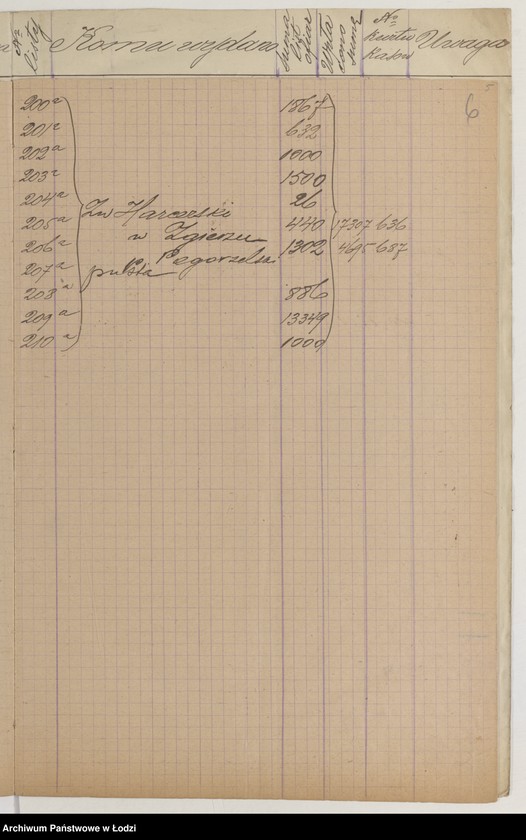 № listy Komu wydano Suma ofiar Wpłacono sumę № kwitu Kasow Uwaga
6
200a 1867
201a 632
202a 1000
203a 1500
204a 26
Zw Harcerski
205a 440 17307 636
w Zgierzu
206a 1302 4695 687
Pegorzelski
207a puszka
208a 886
209a 13349
210a 1000
Archiwum Państwowe w Łodzi